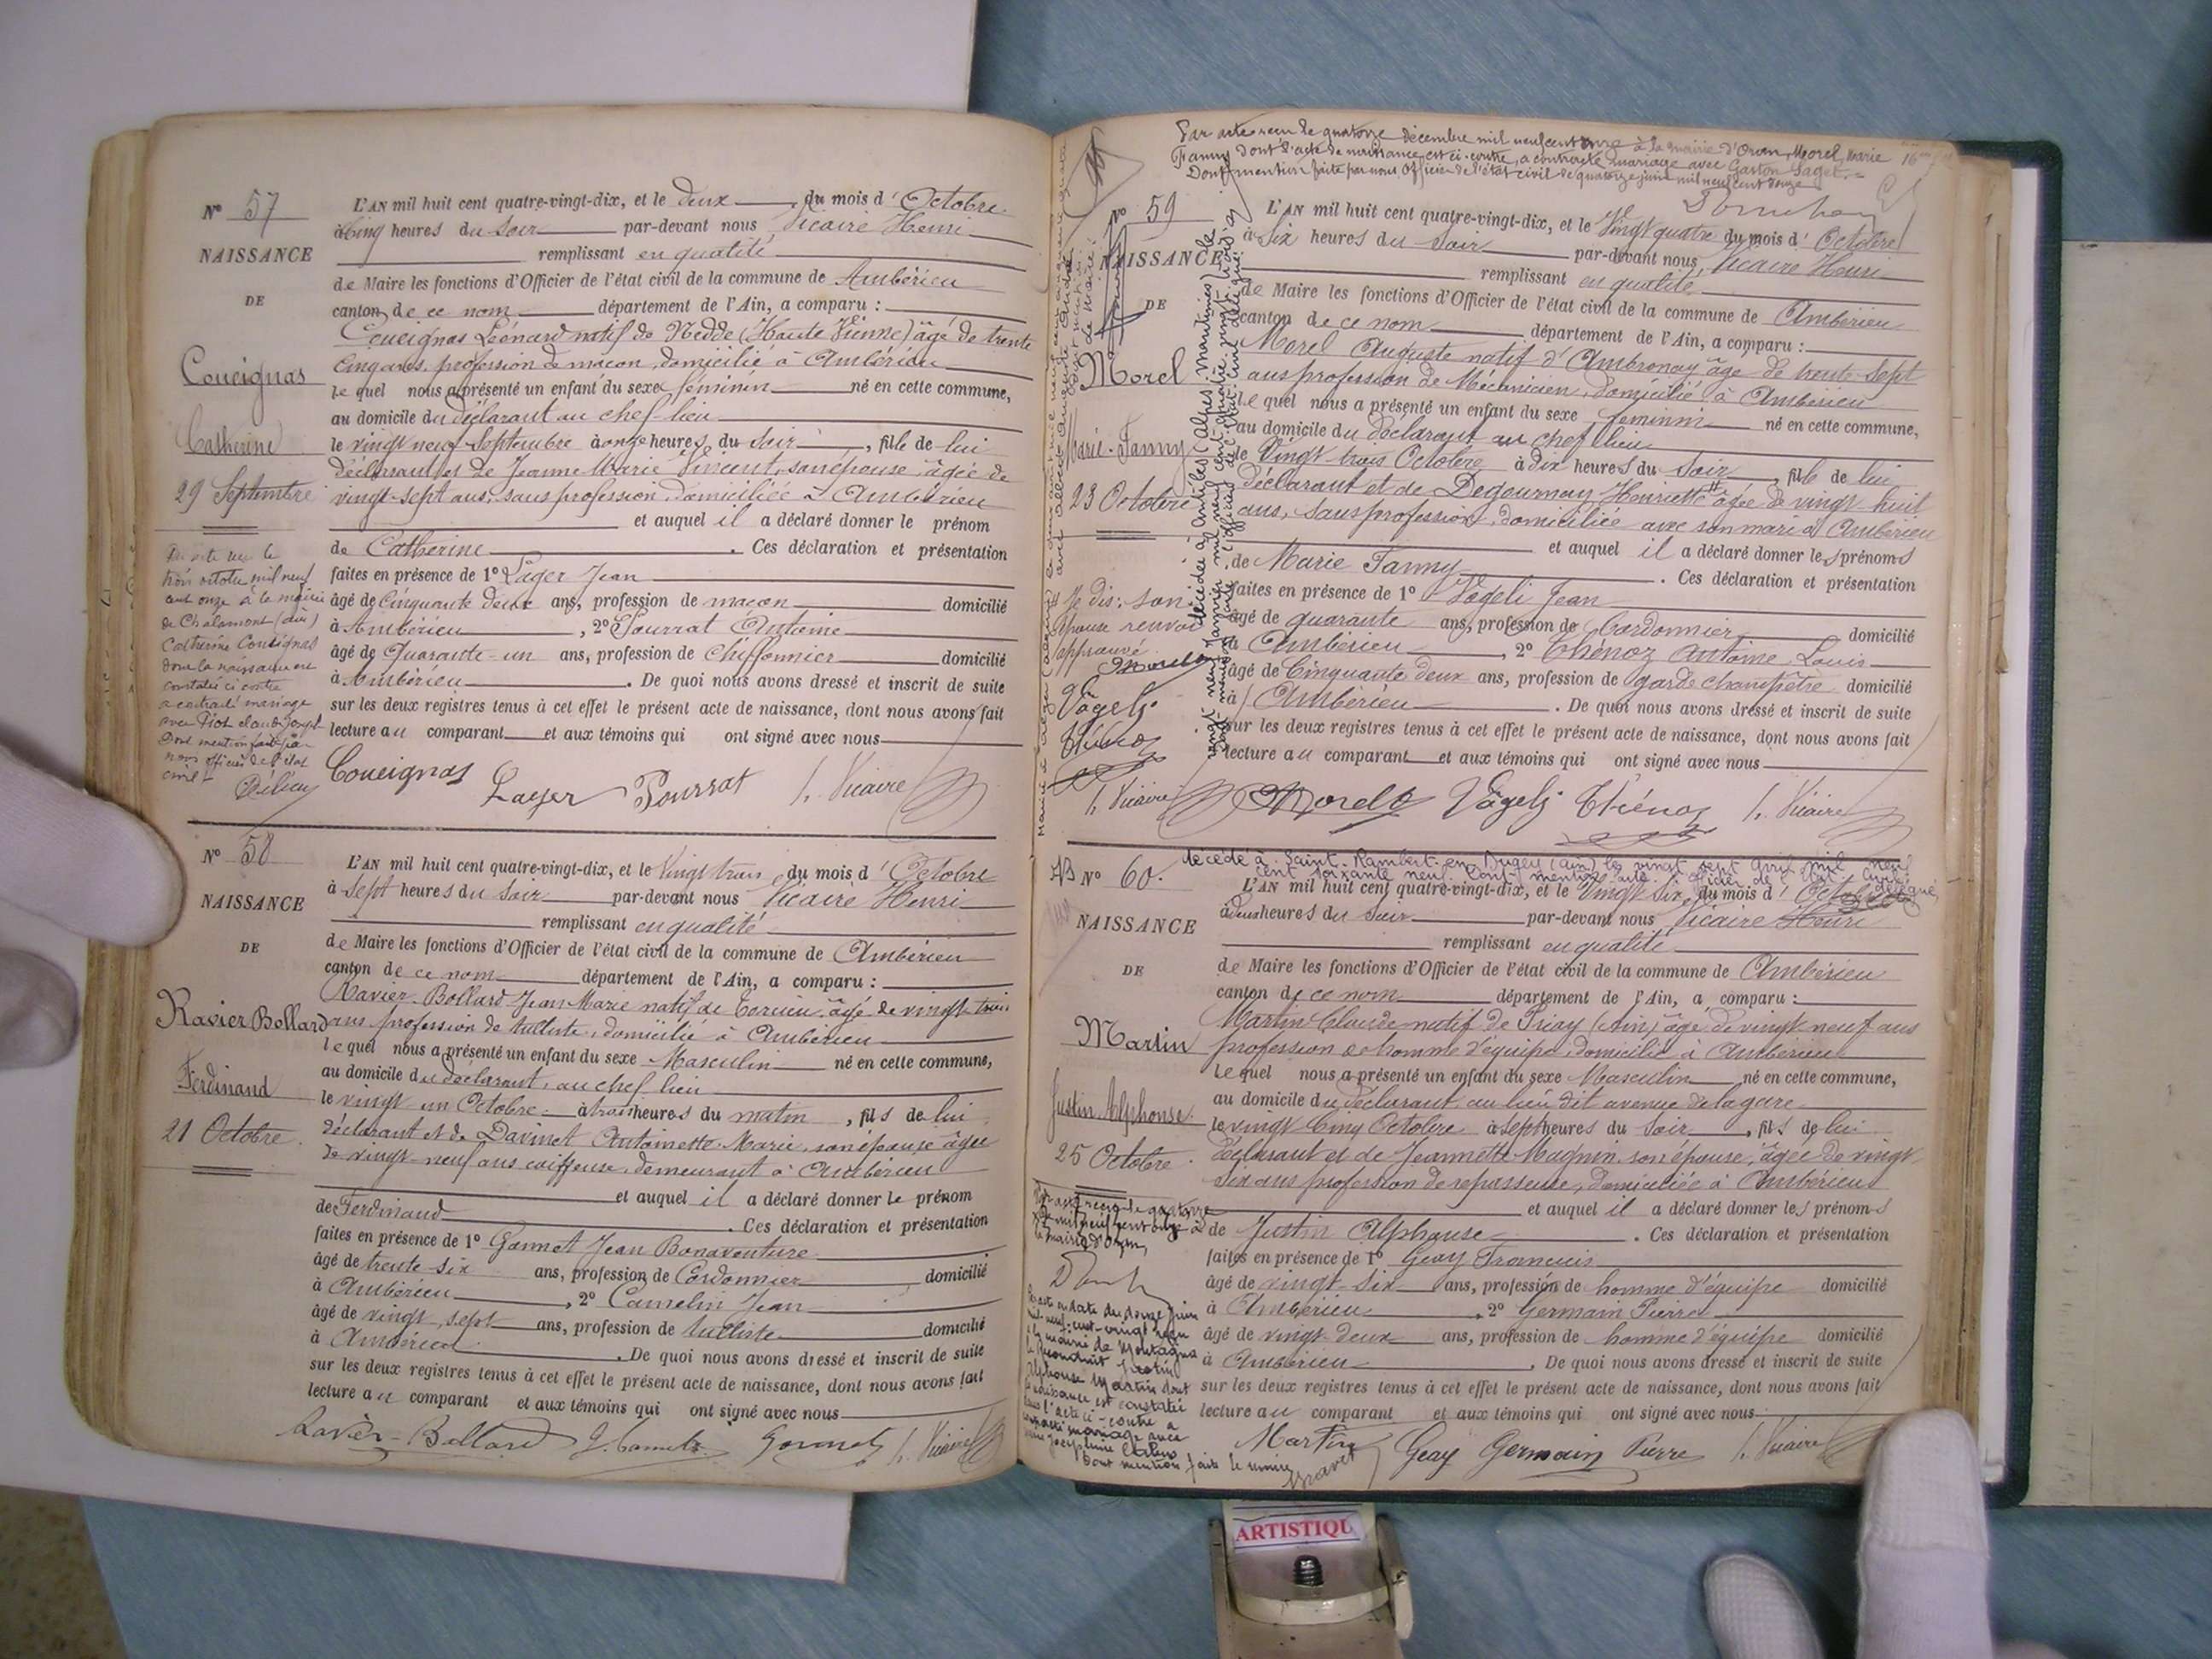 N° 57
NAISSANCE
DE
Coueignas
Catherine
29 Septembre
L'AN mil huit cent quatre-vingt-dix, et le deux du mois d'Octobre
à Cinq heures du Soir par-devant nous Vicaire Henri
remplissant en qualité
de Maire les fonctions d'Officier de l'état civil de la commune de Ambérieu
canton de ce nom département de l'Ain, a comparu :
Coueignas Léonard natif de Nedde (Haute Vienne) âgé de trente
cinq ans, profession de maçon, domicilié à Ambérieu
le quel nous a présenté un enfant du sexe féminin né en cette commune,
au domicile du déclarant au chef-lieu
le vingt neuf Septembre à onze heures du Soir, fille de lui
déclarant et de Jeanne Marie Vincent, son épouse, âgée de
vingt-sept ans, sans profession, domiciliée à Ambérieu
et auquel il a déclaré donner le prénom
de Catherine. Ces déclaration et présentation
faites en présence de 1° Lager Jean
âgé de Cinquante deux ans, profession de maçon domicilié
à Ambérieu, 2° Pourrat Antoine
âgé de Quarante-un ans, profession de Chiffonnier domicilié
à Ambérieu. De quoi nous avons dressé et inscrit de suite
sur les deux registres tenus à cet effet le présent acte de naissance, dont nous avons fait
lecture au comparant et aux témoins qui ont signé avec nous
trois octobre mil neuf
cent onze à la mairie
de Chalamont (Ain)
Catherine Coueignas
dont la naissance est
constatée ci contre
a contracté mariage
avec
Dont mention faite par
nous officier de l'état
civil
Coueignas Lager Pourrat h. Vicaire
N° 58
NAISSANCE
DE
Ravier Bollard
Ferdinand
21 Octobre
L'AN mil huit cent quatre-vingt-dix, et le Vingt trois du mois d'Octobre
à Sept heures du Soir par-devant nous Vicaire Henri
remplissant en qualité
de Maire les fonctions d'Officier de l'état civil de la commune de Ambérieu
canton de ce nom département de l'Ain, a comparu :
Ravier-Bollard Jean Marie natif de Torcieu âgé de vingt-trois
ans profession de tulliste, domicilié à Ambérieu
le quel nous a présenté un enfant du sexe Masculin né en cette commune,
au domicile du déclarant, au chef lieu
le vingt un Octobre à trois heures du matin, fils de lui
déclarant et de Davinet Antoinette Marie, son épouse âgée
de vingt-neuf ans coiffeuse, demeurant à Ambérieu
et auquel il a déclaré donner le prénom
de Ferdinand. Ces déclaration et présentation
faites en présence de 1° Gonnet Jean Bonaventure
âgé de trente-six ans, profession de Cordonnier domicilié
à Ambérieu, 2° Camelin Jean
âgé de vingt sept ans, profession de tulliste domicilié
à Ambérieu. De quoi nous avons dressé et inscrit de suite
sur les deux registres tenus à cet effet le présent acte de naissance, dont nous avons fait
lecture au comparant et aux témoins qui ont signé avec nous
Ravier-Bollard J. Camelin Gonnet h. Vicaire
Par acte reçu le quatorze décembre mil neuf cent onze à la mairie d'Oran, Morel, Marie
Fanny dont l'acte de naissance est ci-contre, a contracté mariage avec Gaston Saget.
Dont mention faite par nous Officier de l'état civil le quatorze juin mil neuf cent douze
N° 59
NAISSANCE
DE
Morel
Marie-Fanny
23 Octobre
L'AN mil huit cent quatre-vingt-dix, et le Vingt quatre du mois d'Octobre
à Six heures du Soir par-devant nous Vicaire Henri
remplissant en qualité
de Maire les fonctions d'Officier de l'état civil de la commune de Ambérieu
canton de ce nom département de l'Ain, a comparu :
Morel Auguste natif d'Ambronay âgé de trente-Sept
ans profession de Mécanicien, domicilié à Ambérieu
le quel nous a présenté un enfant du sexe féminin né en cette commune,
au domicile du déclarant au chef lieu
le Vingt-trois Octobre à dix heures du Soir, fille de lui
déclarant et de Degournay Henriette # âgée de vingt huit
ans, Sans profession, domiciliée avec son mari à Ambérieu
et auquel il a déclaré donner les prénoms
de Marie Fanny. Ces déclaration et présentation
faites en présence de 1° Vögeli Jean
âgé de quarante ans, profession de Cordonnier domicilié
à Ambérieu, 2° Thénoz Antoine Louis
âgé de Cinquante deux ans, profession de garde champêtre domicilié
à Ambérieu. De quoi nous avons dressé et inscrit de suite
sur les deux registres tenus à cet effet le présent acte de naissance, dont nous avons fait
lecture au comparant et aux témoins qui ont signé avec nous
# Je dis : son
épouse renvoi
approuvé
Morel
Vögeli
Thénoz
h. Vicaire
décédée à Antibes (Alpes Maritimes) le
Morel Vögeli Thénoz h. Vicaire
décédé à Saint-Rambert-en-Bugey (Ain) le vingt sept avril mil neuf
cent soixante neuf. Dont mention faite. L'officier de l'état civil délégué,
N° 60.
NAISSANCE
DE
Martin
Justin Alphonse
25 Octobre
L'AN mil huit cent quatre-vingt-dix, et le Vingt Six du mois d'Octobre
à deux heures du Soir par-devant nous Vicaire Henri
remplissant en qualité
de Maire les fonctions d'Officier de l'état civil de la commune de Ambérieu
canton de ce nom département de l'Ain, a comparu :
Martin Claude natif de Priay (Ain) âgé de vingt neuf ans
profession de homme d'équipe, domicilié à Ambérieu
le quel nous a présenté un enfant du sexe Masculin né en cette commune,
au domicile du déclarant au lieu dit avenue de la gare
le vingt Cinq Octobre à Sept heures du Soir, fils de lui
Déclarant et de Jeannette Magnin son épouse, âgée de vingt
six ans profession de repasseuse, domiciliée à Ambérieu
et auquel il a déclaré donner les prénoms
de Justin Alphonse. Ces déclaration et présentation
faites en présence de 1° Geay Francois
âgé de vingt-six ans, profession de homme d'équipe domicilié
à Ambérieu, 2° Germain Pierre
âgé de vingt-deux ans, profession de homme d'équipe domicilié
à Ambérieu. De quoi nous avons dressé et inscrit de suite
sur les deux registres tenus à cet effet le présent acte de naissance, dont nous avons fait
lecture au comparant et aux témoins qui ont signé avec nous
Par acte en date du douze juin
mil neuf cent vingt reçu
à la mairie de Montagna
le Reconduit Justin
Alphonse Martin dont
la naissance est constatée
dans l'acte ci-contre a
contracté mariage avec
Dont mention faite le
Martin Geay Germain Pierre h. Vicaire
ARTISTIQU